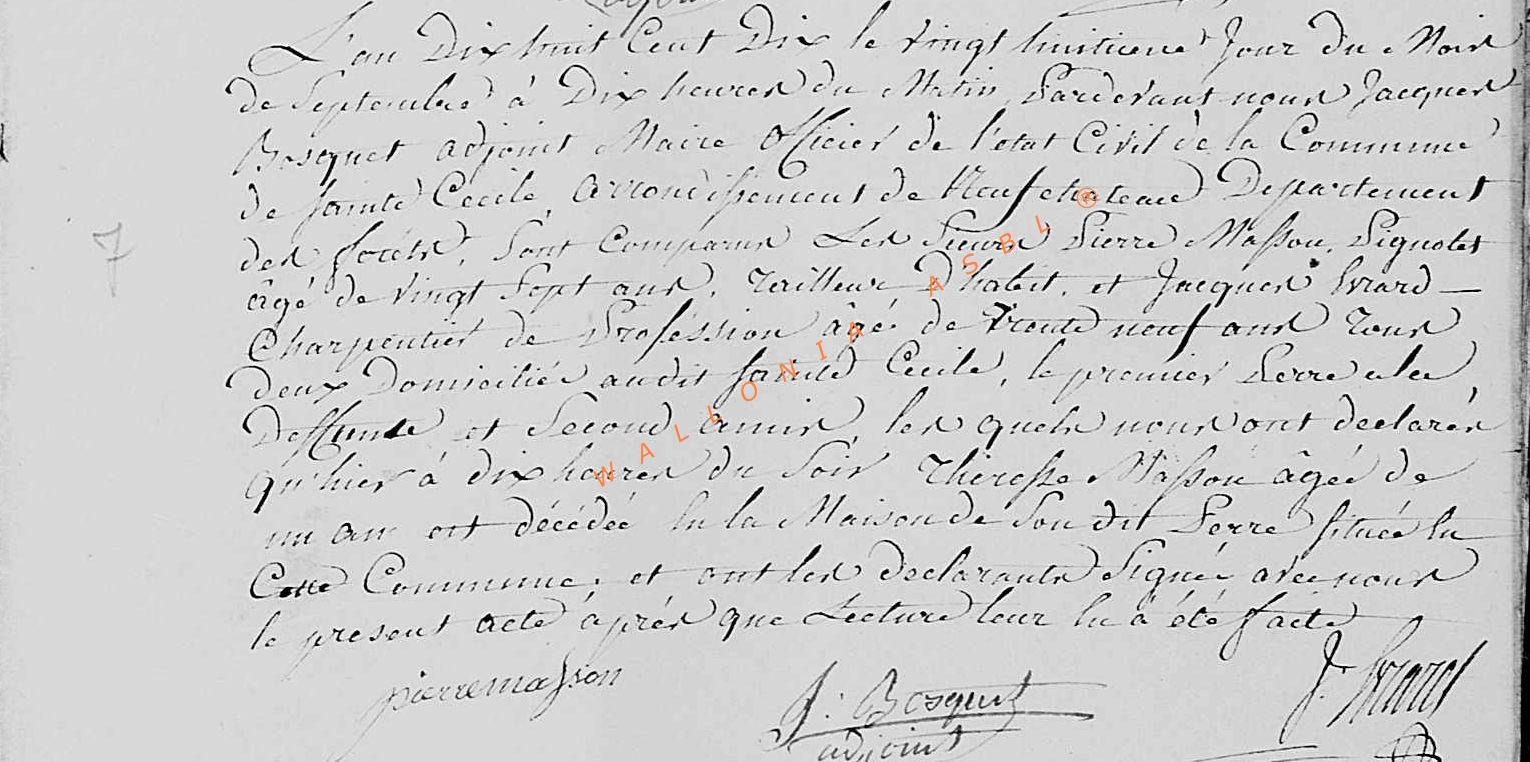 L'an Dix huit Cent Dix le vingt huitieme Jour du Mois
de Septembre à Dix heures du Matin, Pardevant nous Jacques
Bosquet adjoint Maire Officier de l'etat Civil de la Commune
de Sainte Cecile, arrondissement de Neufchateau Departement
des forêts, Sont Comparus Les Sieurs Pierre Masson, Pignolet
âgé de vingt Sept ans, Tailleur D'habit, et Jacques Evrard —
Charpentier de Profession âgé de Trente neuf ans Tous
deux Domiciliés audit Sainte Cecile, le premier Perre de la
Deffunte et Second amis, les quels nous ont declarés
qu'hier à dix heures du Soir Theresse Masson âgée de
un an est décédée En la Maison de Son dit Perre située En
Cette Commune; et ont les declarants Signé avec nous
le present acte après que Lecture leur En à été faite
pierre masson
J. Bosquet
adjoint
J. Evrard
7
WALLONIA ASBL ®